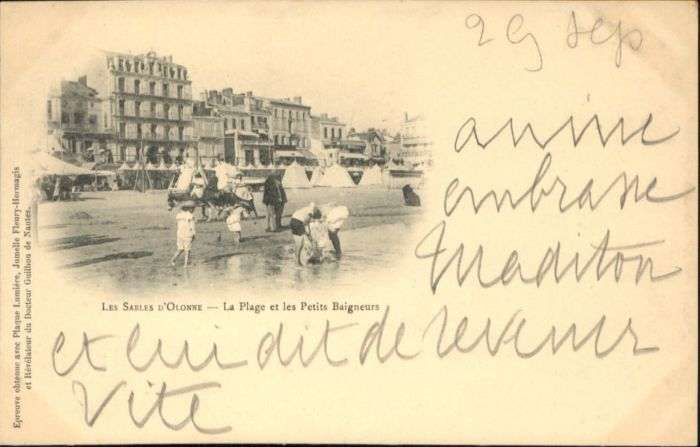 29 sep
anine
embrasse
Maditon
et lui dit de revenir
vite
LES SABLES D'OLONNE — La Plage et les Petits Baigneurs
Epreuve obtenue avec Plaque Lumière, Jumelle Fleury-Hermagis
et Révélateur du Docteur Guilbon de Nantes.